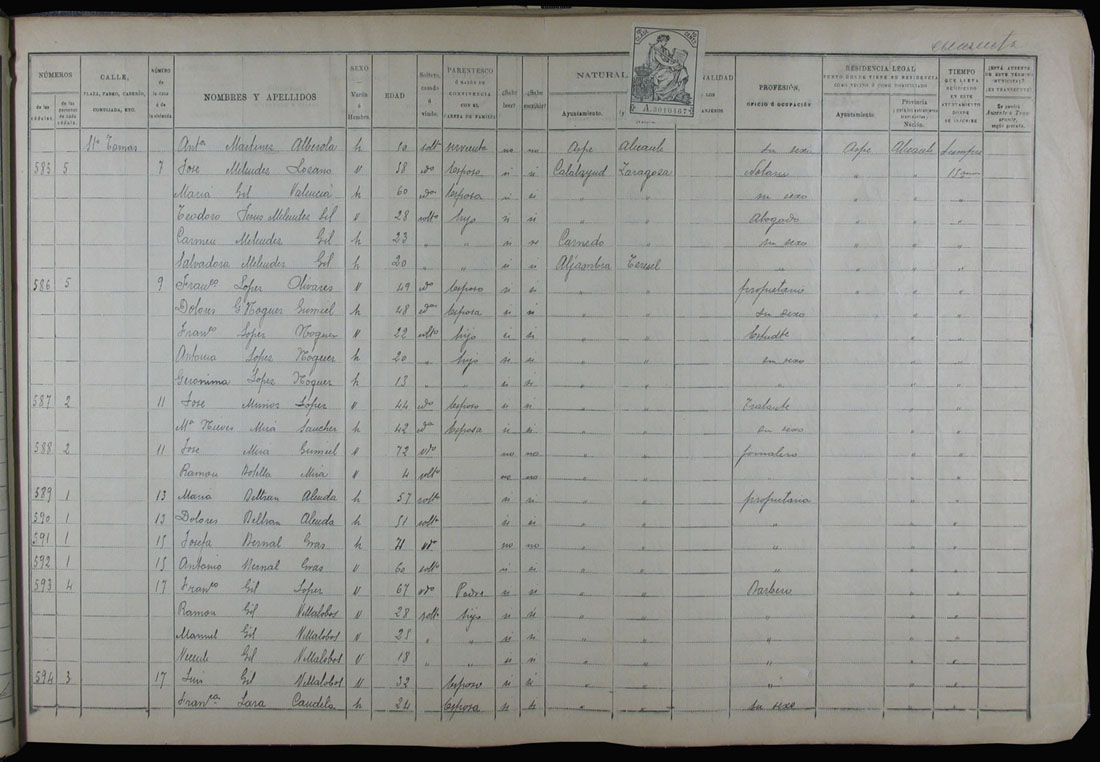 cuarenta
NÚMEROS
de las cédulas.
de las personas de cada cédula.
CALLE,
PLAZA, PASEO, CASERÍO, CORTIJADA, ETC.
NÚMERO de la casa ó de la vivienda
NOMBRES Y APELLIDOS
SEXO
Varón ó Hembra.
EDAD
Soltero, casado ó viudo.
PARENTESCO
Ó RAZÓN DE CONVIVENCIA CON EL CABEZA DE FAMILIA
¿Sabe leer?
¿Sabe escribir?
NATURAL
Ayuntamiento.
A.3010467
PROFESIÓN,
OFICIO Ó OCUPACIÓN
RESIDENCIA LEGAL
Ayuntamiento.
Provincia
Nación.
TIEMPO
QUE LLEVA DE RESIDENCIA EN ESTE AYUNTAMIENTO
¿ESTÁ AUSENTE DE ESTE TÉRMINO MUNICIPAL?
¿ES TRANSEUNTE?
Sto Tomás Anta Martinez Alberola h 10 solt sirvienta no no Aspe Alicante su sexo Aspe Alicante Siempre
585 5 7 Jose Melendez Lozano v 58 cdo Esposo si si Calatayud Zaragoza Notario " " 15 años
Maria Gil Valencia h 60 cda Esposa si si " " su sexo " " "
Teodoro Jesus Melendez Gil v 28 solto hijo si si " " Abogado " " "
Carmen Melendez Gil h 23 " " si si Carnedo " su sexo " " "
Salvadora Melendez Gil h 20 " " si si Teruel " " " "
586 5 9 Franco Lopez Olivares v 49 cdo Esposo si si " " propietario " " "
Dolores G. Noguer Gumiel h 48 cda Esposa si si " " su sexo " " "
Franco Lopez Noguer v 22 solto hijo si si " " Estudte " " "
Antonia Lopez Noguer h 20 " hijo si si " " su sexo " " "
Geronima Lopez Noguer h 15 " " si si " " " " " "
587 2 11 Jose Munoz López v 44 cdo Esposo si si " " Tratante " " "
Ma Nieves Mira Sanchez h 42 cda Esposa si si " " su sexo " " "
588 2 11 Jose Mira Gumiel v 72 vdo no no " " jornalero " " "
Ramon Botella Mira v 4 solto no no " " " " "
589 1 13 Maria Beltran Alenda h 57 solta si si " " propietaria " " "
590 1 13 Dolores Beltran Alenda h 51 solta si si " " " " " "
591 1 15 Josefa Bernal Gras h 71 vda no no " " " " "
592 1 15 Antonio Bernal Gras v 60 solto si si " " " " " "
593 4 17 Franco Gil Lopez v 67 vdo Padre si si " " Barbero " " "
Ramon Gil Villalobos v 28 solto hijo si si " " " " " "
Manuel Gil Villalobos v 25 " " si si " " " " " "
Vicente Gil Villalobos v 18 " " si si " " " " " "
594 3 17 Luis Gil Villalobos v 32 Esposo si si " " " " " "
Franca Lara Candela h 24 Esposa si si " " su sexo " " "